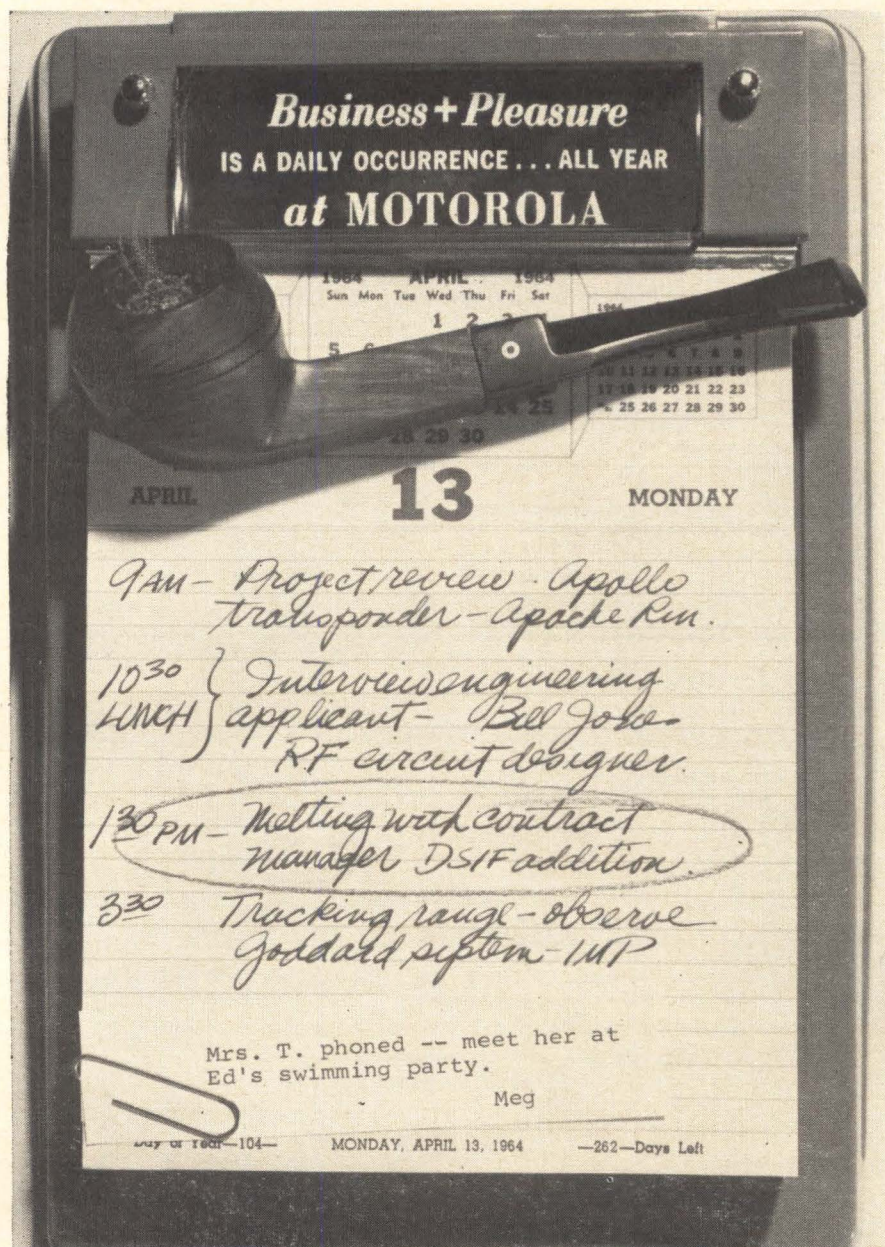 Business + Pleasure
IS A DAILY OCCURRENCE... ALL YEAR
at MOTOROLA
1964 APRIL 1964
Sun Mon Tue Wed Thu Fri Sat
1 2 3 4
5 6
24 25
28 29 30
1964
6 7 8 9
10 11 12 13 14 15 16
17 18 19 20 21 22 23
25 26 27 28 29 30
APRIL 13 MONDAY
9 AM - Project review. Apollo
transponder - Apache Run.
10 30 Interview engineering
LUNCH applicant - Bill Jones
RF circuit designer.
1 30 PM - Meeting with contract
manager DSIF addition
3 30 Tracking range - observe
Goddard system - IMP
Mrs. T. phoned -- meet her at
Ed's swimming party.
Meg
Day of Year—104— MONDAY, APRIL 13, 1964 —262—Days Left